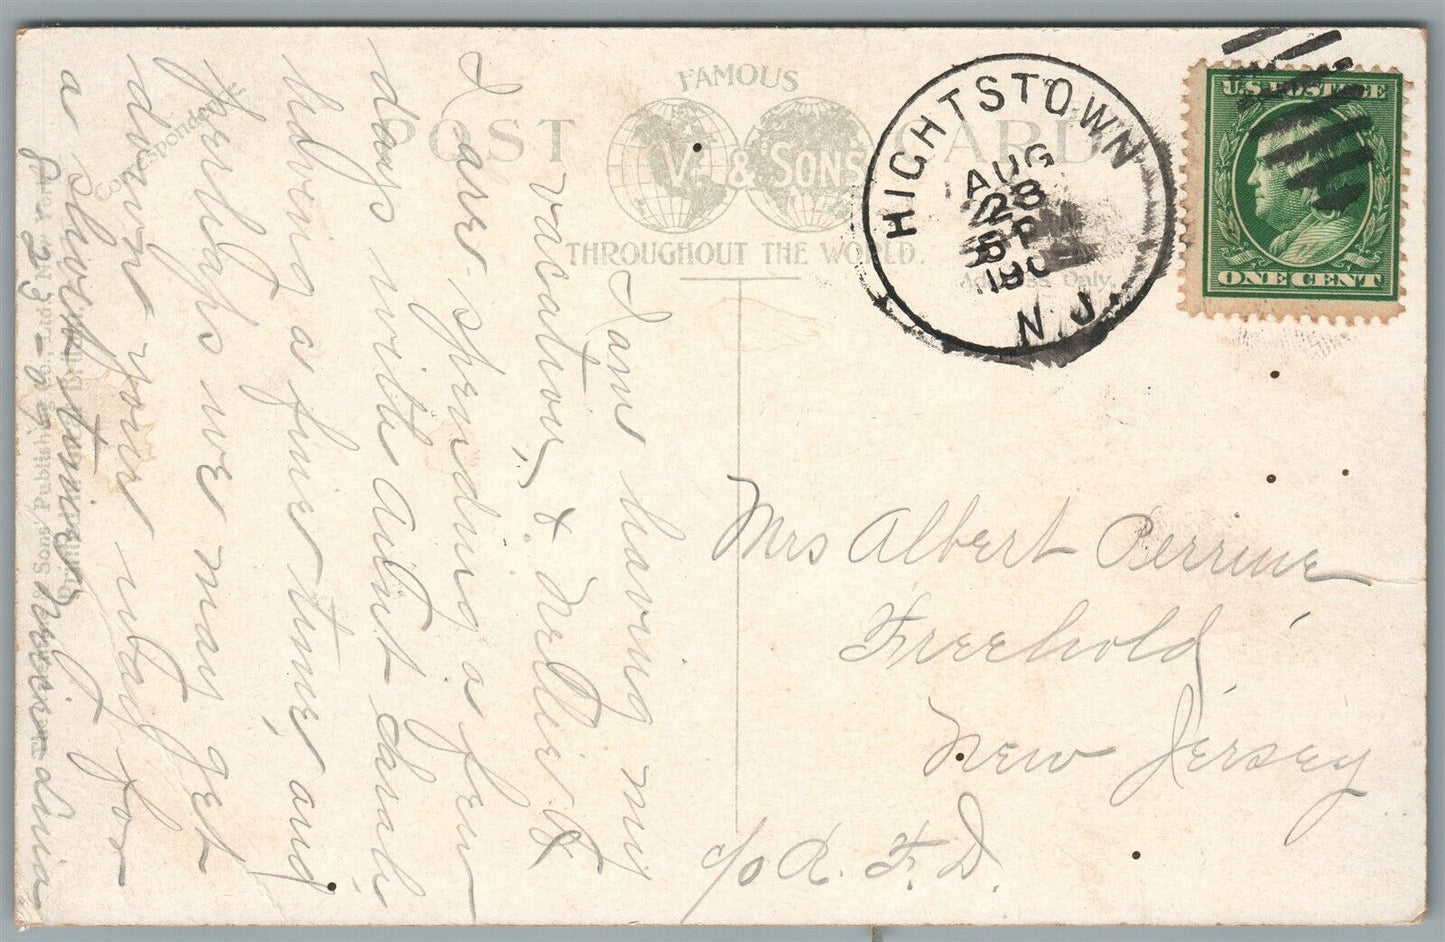 FAMOUS
POST CARD
V. & SONS
THROUGHOUT THE WORLD.
Correspondence
Only
HIGHTSTOWN
AUG
28
6 P
190
N.J.
U.S. POSTAGE
ONE CENT
I am having my
vacation, & Nellie &
I are spending a few
days with Aunt Sarah
having a fine time, and
perhaps we may get
down your way for
a short time
8-28-
Mrs Albert Perrine
Freehold
New Jersey
c/o R. F. D.